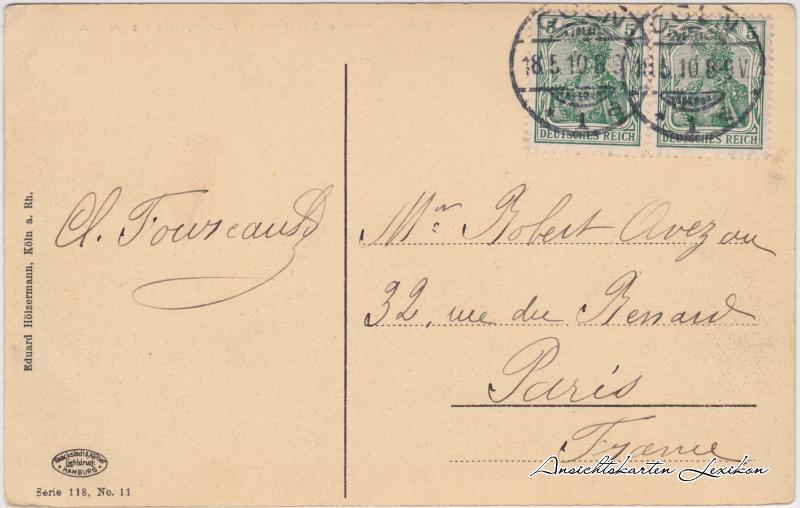 CÖLN
18.5.10.8-9
* 1 d
5 5
DEUTSCHES REICH
CÖLN
18.5.10.8-9V
* 1 d
5 5
DEUTSCHES REICH
Cl. Fourcauld
Mr Robert Avezou
32, rue du Renard
Paris
France
Eduard Hölzermann, Köln a. Rh.
Knackstedt & Näther
Lichtdruck
HAMBURG
Serie 118, No. 11
Ansichtskarten Lexikon